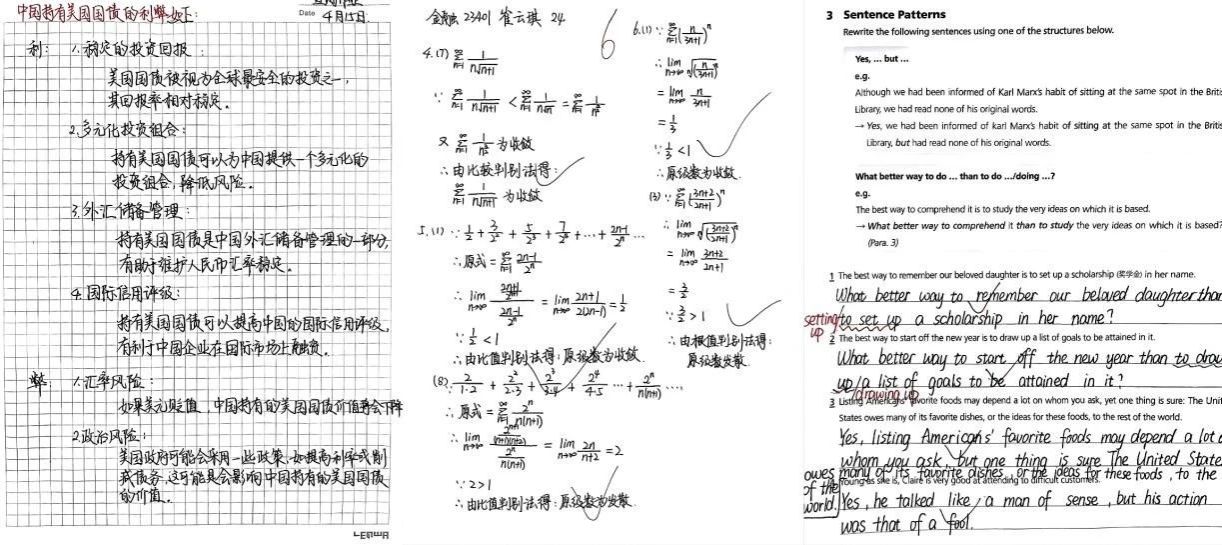 中国持有美国国债的利弊如下:
Date 4月15日.
利: 1.稳定的投资回报:
美国国债被视为全球最安全的投资之一,
其回报率相对稳定。
2.多元化投资组合:
持有美国国债可以为中国提供一个多元化的
投资组合,降低风险。
3.外汇储备管理:
持有美国国债是中国外汇储备管理的一部分,
有助于维护人民币汇率稳定。
4.国际信用评级:
持有美国国债可以提高中国的国际信用评级,
有利于中国企业在国际市场上融资。
弊: 1.汇率风险:
如果美元贬值,中国持有的美国国债价值将会下降
2.政治风险:
美国政府可能会采用一些政策,如提高利率或削
减债务,这可能是会影响中国持有的美国国债
的价值。
金融 23401 崔云琪 24
6
4.(7) ∑_{n=1}^{∞} 1/(n√(n+1))
∵ ∑_{n=1}^{∞} 1/(n√(n+1)) < ∑_{n=1}^{∞} 1/(n√n) = ∑_{n=1}^{∞} 1/n^{3/2}
又 ∑_{n=1}^{∞} 1/n^{3/2} 为收敛
∴由比较判别法得:
∑_{n=1}^{∞} 1/(n√(n+1)) 为收敛
5.(1) ∵ 1/2 + 3/2² + 5/2³ + 7/2⁴ + ··· + (2n-1)/2ⁿ ...
∴原式 = ∑_{n=1}^{∞} (2n-1)/2ⁿ
∴ lim_{n→∞} = lim_{n→∞} (2n+1)/(2(2n-1)) = 1/2
∵ 1/2 < 1
∴由比值判别法得:原级数为收敛.
(8) 2/(1·2) + 2²/(2·3) + 2³/(3·4) + 2⁴/(4·5) ··· + 2ⁿ/(n(n+1)) ····
∴原式 = ∑_{n=1}^{∞} 2ⁿ/(n(n+1))
∴ lim_{n→∞} = lim_{n→∞} 2n/(n+2) = 2
∵ 2>1
∴由比值判别法得:原级数为发散.
6.(1) ∵ ∑_{n=1}^{∞} (n/(3n+1))ⁿ
∴ lim_{n→∞} ⁿ√(n/(3n+1))ⁿ
= lim_{n→∞} n/(3n+1)
= 1/3
∵ 1/3 < 1
∴原级数为收敛.
(3) ∵ ∑_{n=1}^{∞} ((3n+2)/(2n+1))ⁿ
∴ lim_{n→∞} ⁿ√((3n+2)/(2n+1))ⁿ
= lim_{n→∞} (3n+2)/(2n+1)
= 3/2
∵ 3/2 > 1
∴由根值判别法得:
原级数发散.
3 Sentence Patterns
Rewrite the following sentences using one of the structures below.
Yes, ... but ...
e.g.
Although we had been informed of Karl Marx's habit of sitting at the same spot in the Britis
Library, we had read none of his original words.
→ Yes, we had been informed of karl Marx's habit of sitting at the same spot in the Britis
Library, but had read none of his original words.
What better way to do ... than to do .../doing ...?
e.g.
The best way to comprehend it is to study the very ideas on which it is based.
→ What better way to comprehend it than to study the very ideas on which it is based?
(Para. 3)
1 The best way to remember our beloved daughter is to set up a scholarship (奖学金) in her name.
What better way to remember our beloved daughter than
setting up
to set up a scholarship in her name?
2 The best way to start off the new year is to draw up a list of goals to be attained in it.
What better way to start off the new year than to draw
up a list of goals to be attained in it?
/drawing up
3 Listing Americans' favorite foods may depend a lot on whom you ask, yet one thing is sure: The Unit
States owes many of its favorite dishes, or the ideas for these foods, to the rest of the world.
Yes, listing Americans' favorite foods may depend a lot o
whom you ask, but one thing is sure The United State
owes many of its favorite dishes, or the ideas for these foods, to the
Young as she is, Claire is very good at attending to difficult customers.
of the world.
Yes, he talked like a man of sense, but his action
was that of a fool.